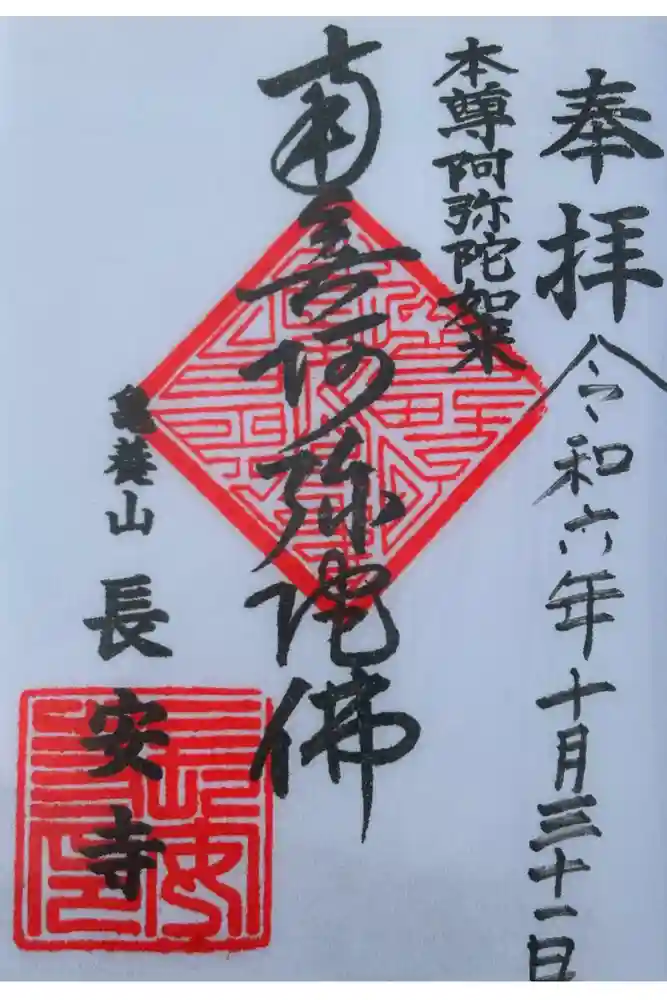 奉拝 令和六年十月三十一日
本尊阿弥陀如来
南無阿弥陀佛
亀養山 長安寺